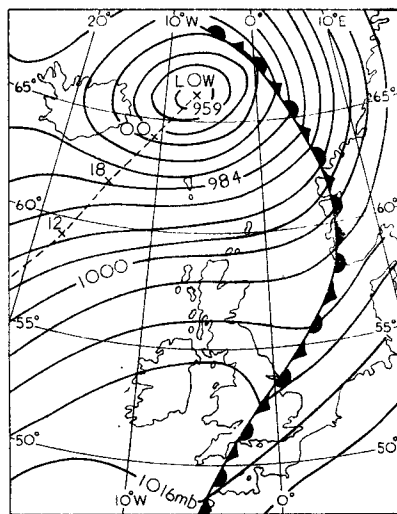 20° 10°W 0° 10°E
65°
LOW
959
65°
00
18
984
60°
60°
12
1000
55°
55°
50°
50°
1016mb
10°W
0°